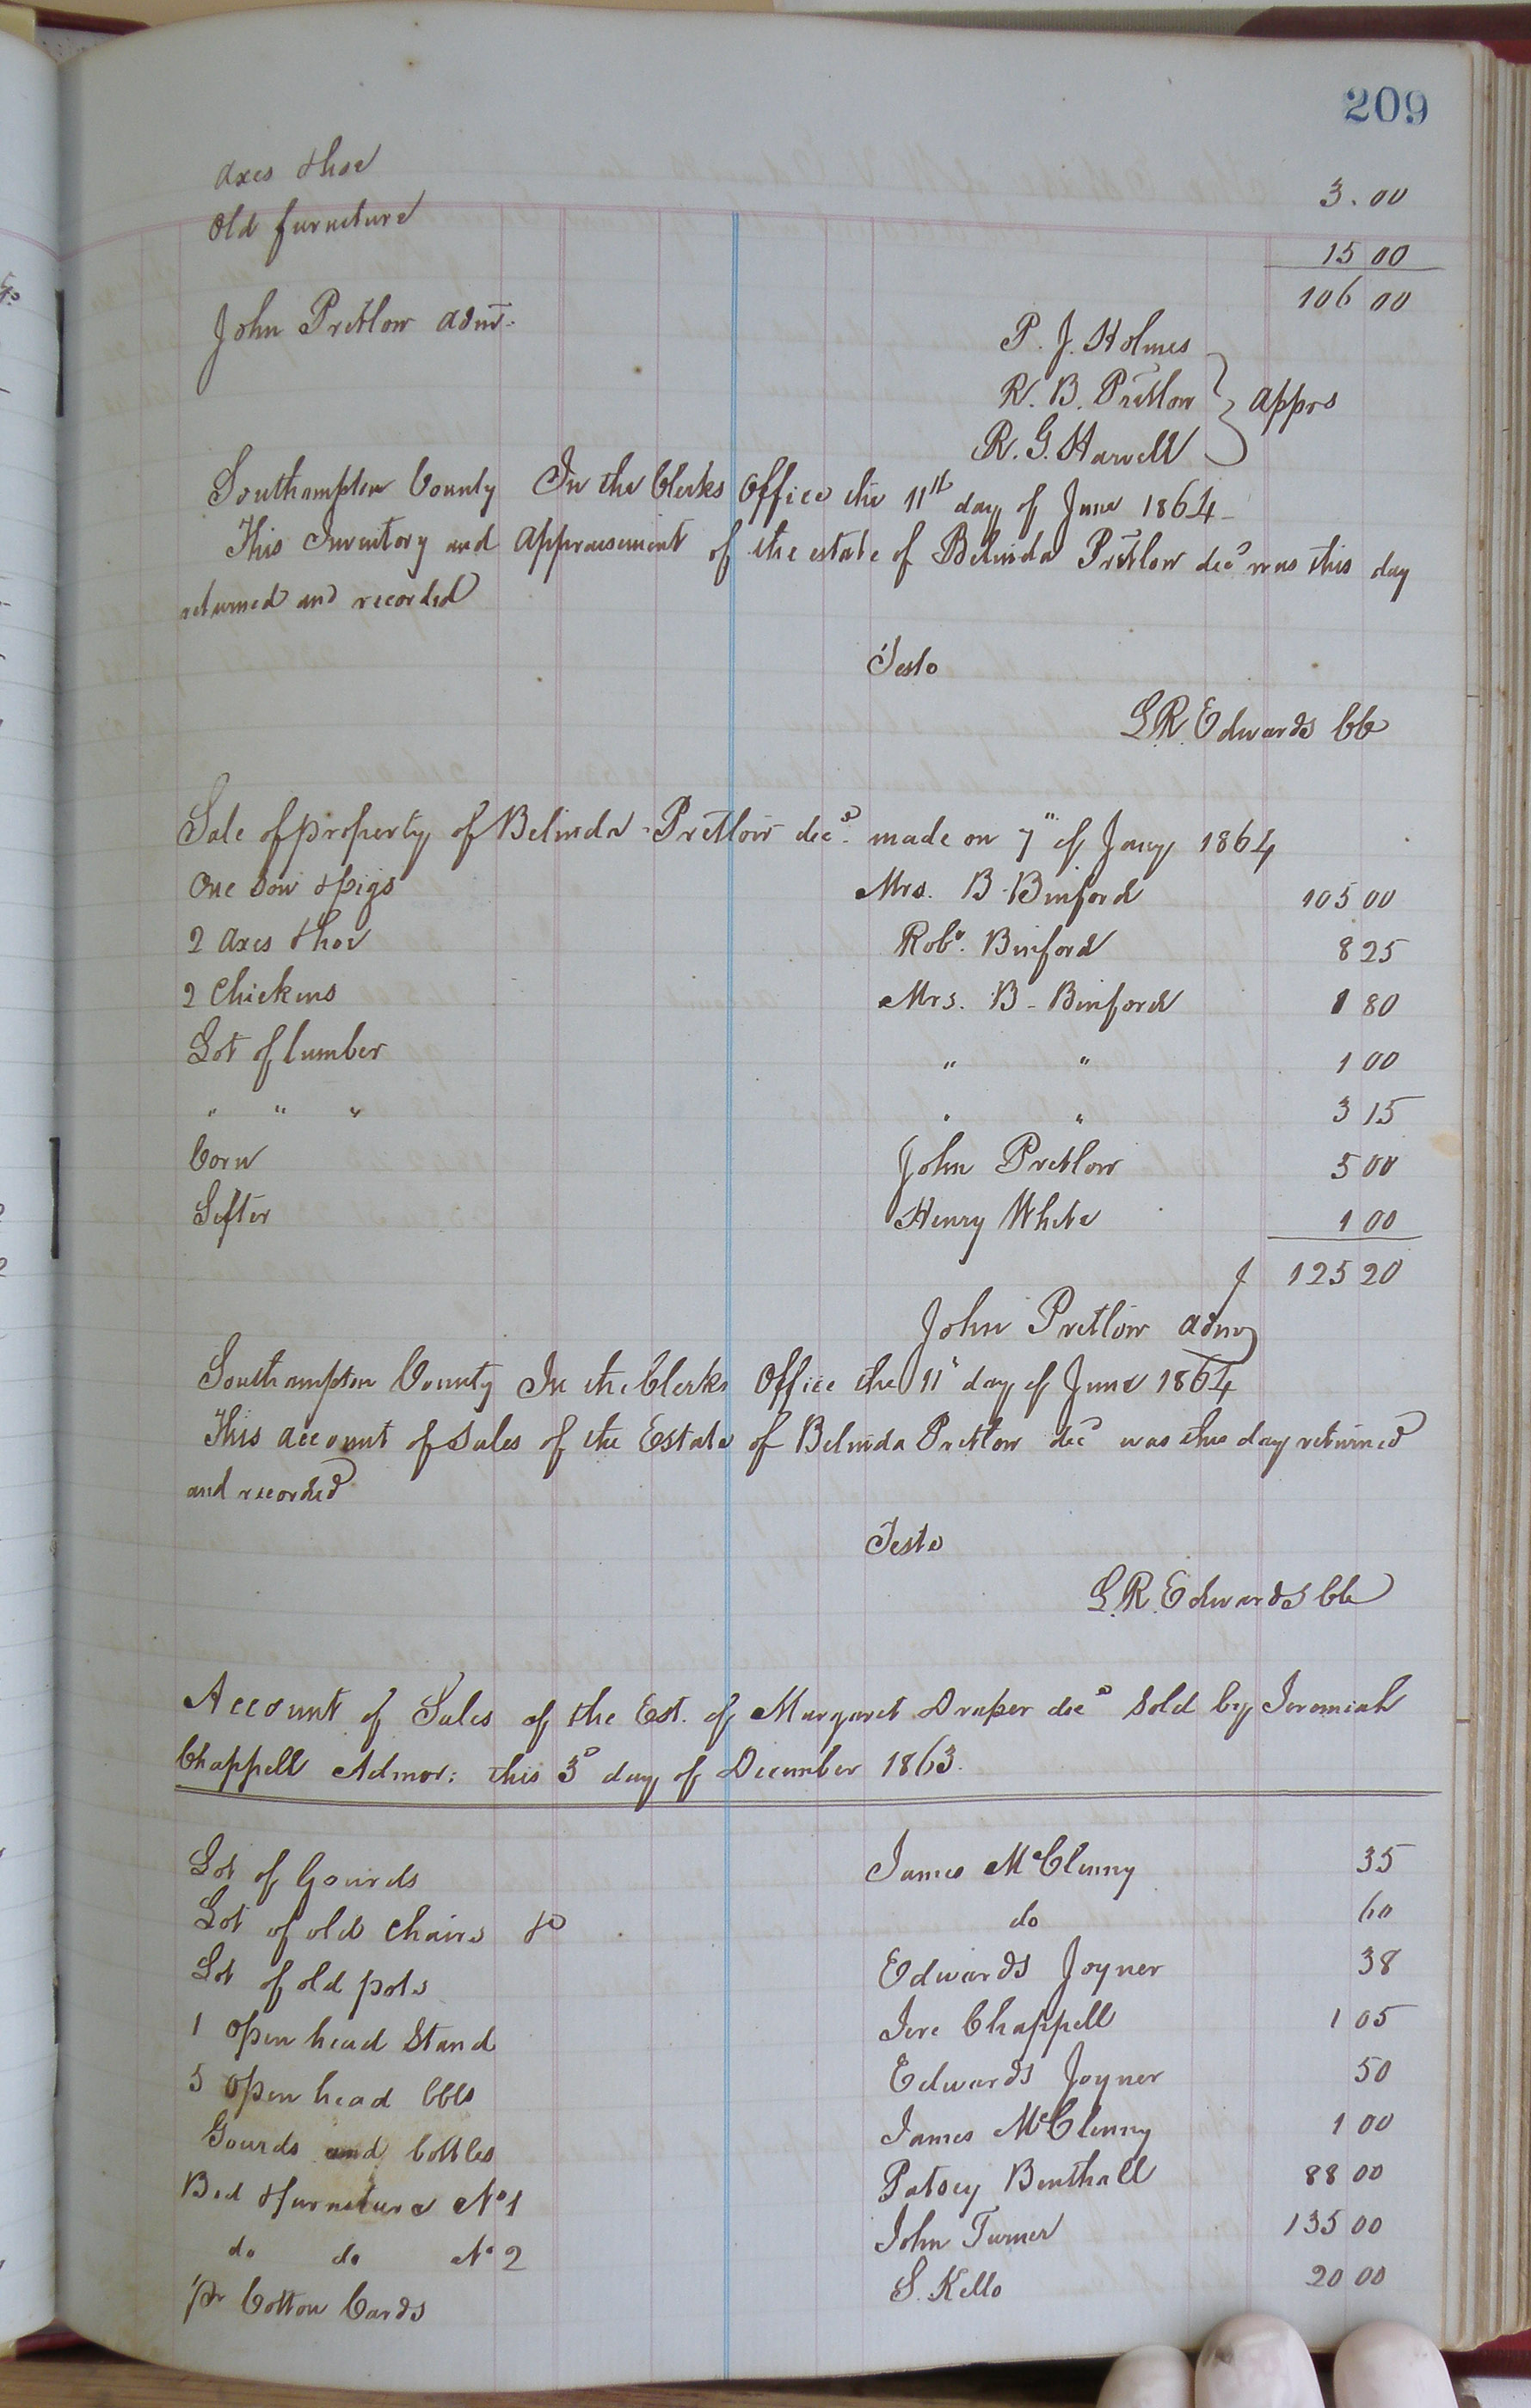 209
axes & hoe 3.00
Old furniture 15 00
106 00
John Pretlow admr.
P. J. Holmes
R. B. Pretlow } apprs
R. G. Harwell
Southampton County In the Clerks Office the 11th day of June 1864
This Inventory and Appraisement of the estate of Belinda Pretlow decd was this day
returned and recorded
Teste
L.R. Edwards CC
Sale of property of Belinda Pretlow decd. made on 7" of Jany 1864
One Sow & pigs Mrs. B. Binford 105 00
2 axes & hoe Robt. Binford 8 25
2 Chickens Mrs. B. Binford 1 80
Lot of lumber " " 1 00
" " " " " 3 15
Corn John Pretlow 5 00
Sifter Henry White 1 00
$ 125 20
John Pretlow admr
Southampton County In the Clerks Office the 11" day of June 1864
This account of Sales of the Estate of Belinda Pretlow decd was this day returned
and recorded
Teste
L.R. Edwards Clk
Account of Sales of the Est. of Margaret Draper decd Sold by Jeremiah
Chappell Admor: this 3d day of December 1863.
Lot of Gourds James McClenny 35
Lot of old Chairs &c do 60
Lot of old pots Edwards Joyner 38
1 open head Stand Jere Chappell 1 05
5 open head bbls Edwards Joyner 50
Gourds and bottles James McClenny 1 00
Bed & furniture No 1 Patsey Benthall 88 00
do do No 2 John Turner 135 00
pr Cotton Cards S. Kello 20 00